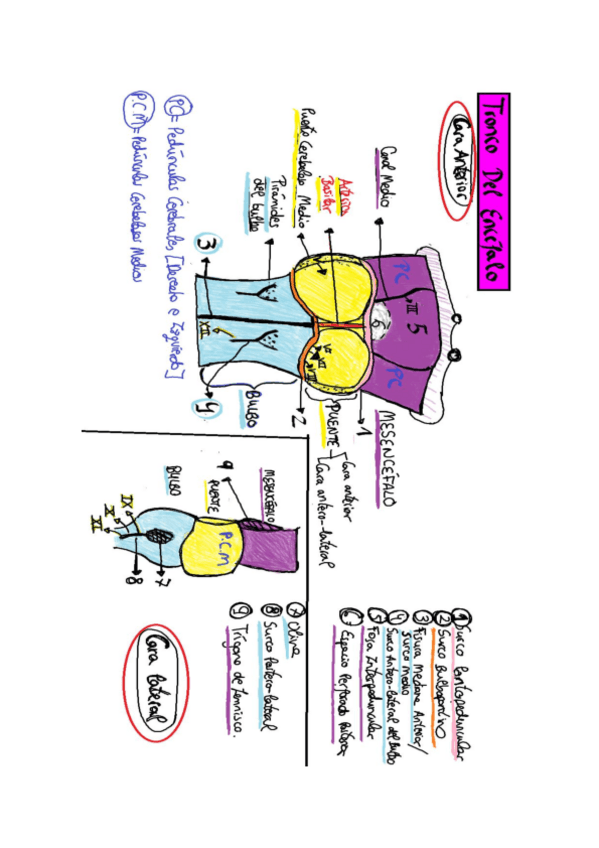 Tronco Del Encéfalo
Cara Anterior
Canal Medio
Arteria
Basilar
Puente Cerebeloso Medio
Pirámides
del bulbo
3
PC
III
5
PC
6
V
VI
VII
XII
4
BULBO
2
PUENTE
Cara anterior
Cara antero-lateral
1
MESENCÉFALO
PC = Pedúnculos Cerebrales [Derecho e Izquierdo]
P.C.M = Pedúnculos Cerebelosos Medios
1 Surco Pontopeduncular
2 Surco Bulbopontino
3 Fisura Mediana Anterior/
Surco medio
4 Surco Antero-lateral del Bulbo
5 Fosa Interpeduncular
6 Espacio Perforado Posterior
MESENCÉFALO
9
PUENTE
BULBO
P.C.M
IX
X
XI
8
7
7 Oliva
8 Surco Postero-lateral
9 Trígono de lemnisco.
Cara Lateral